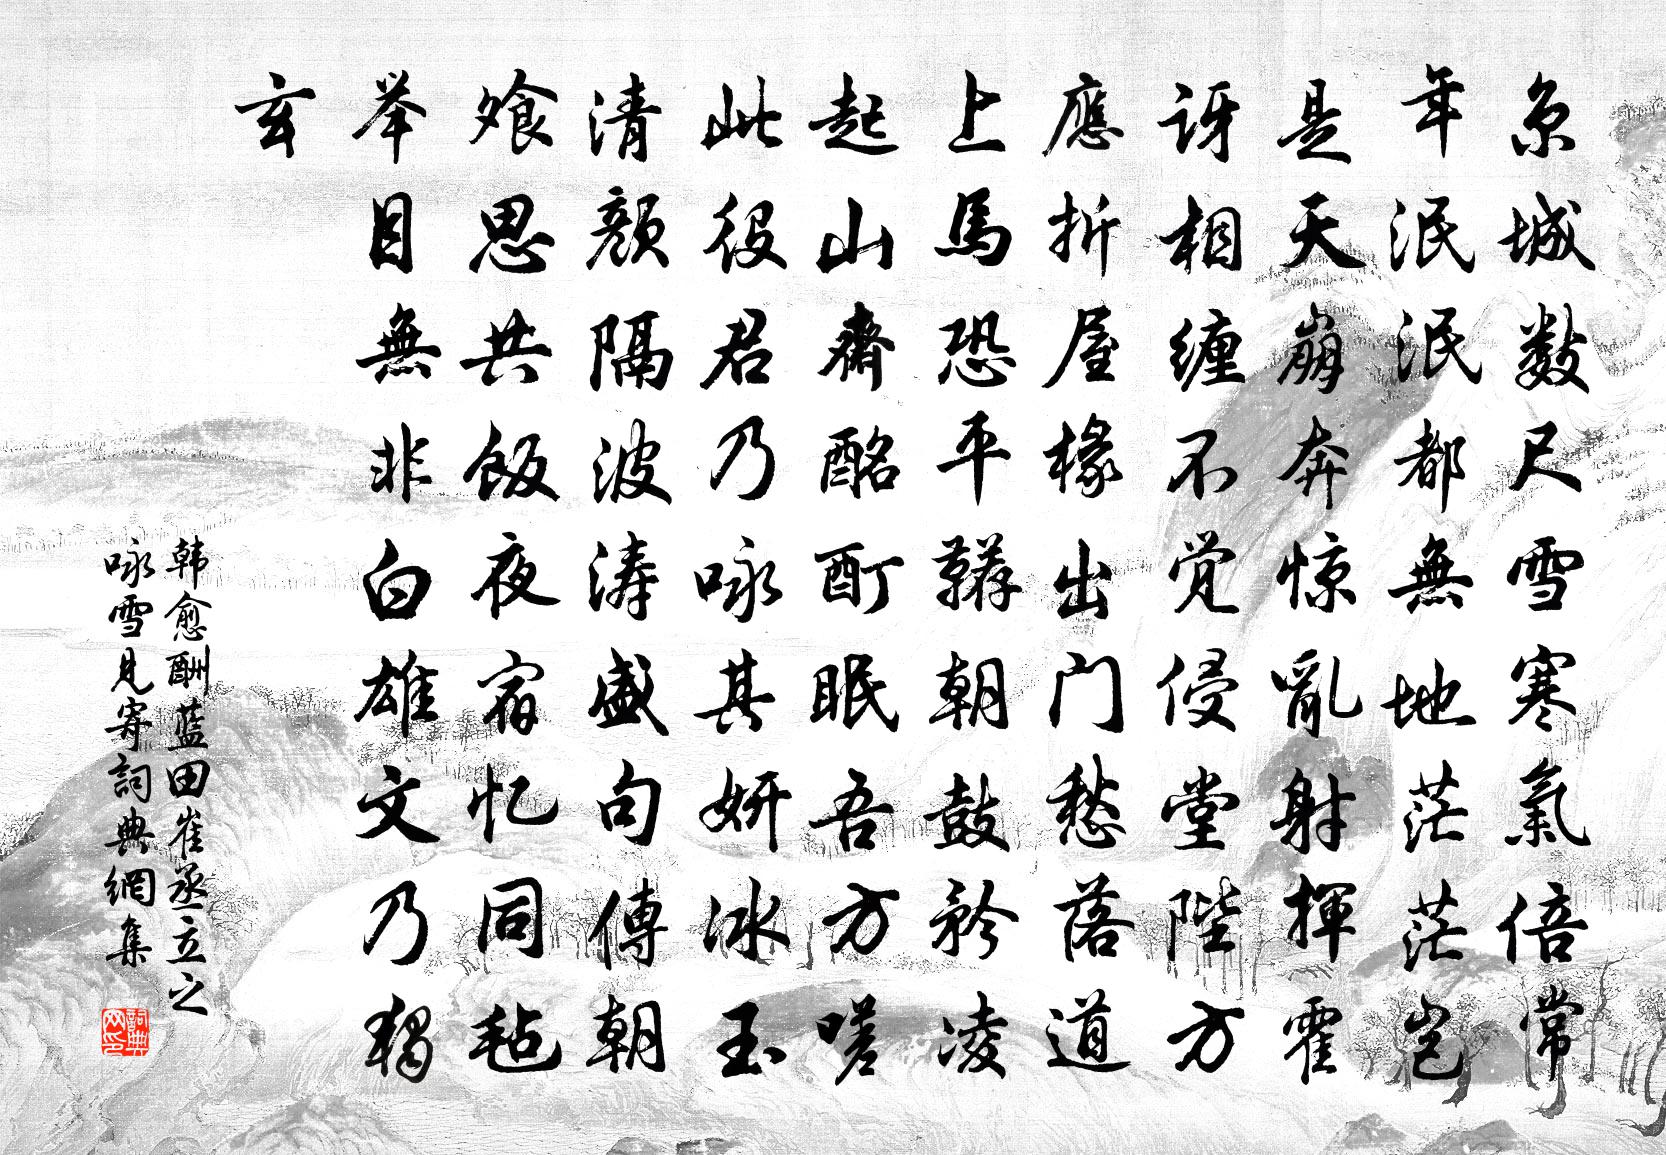 京城数尺雪寒氣倍常
年泯泯都無地茫茫岂
是天崩奔惊亂射揮霍
訝相缠不觉侵堂陛方
應折屋椽出门愁落道
上馬恐平鞯朝鼓矜凌
起山齋酩酊眠吾方嗟
此役君乃咏其妍冰玉
清颜隔波涛盛句傳朝
飧思共飯夜宿忆同毡
举目無非白雄文乃獨
玄
韩愈酬藍田崔丞立之
咏雪見寄詞典網集
詞典网印